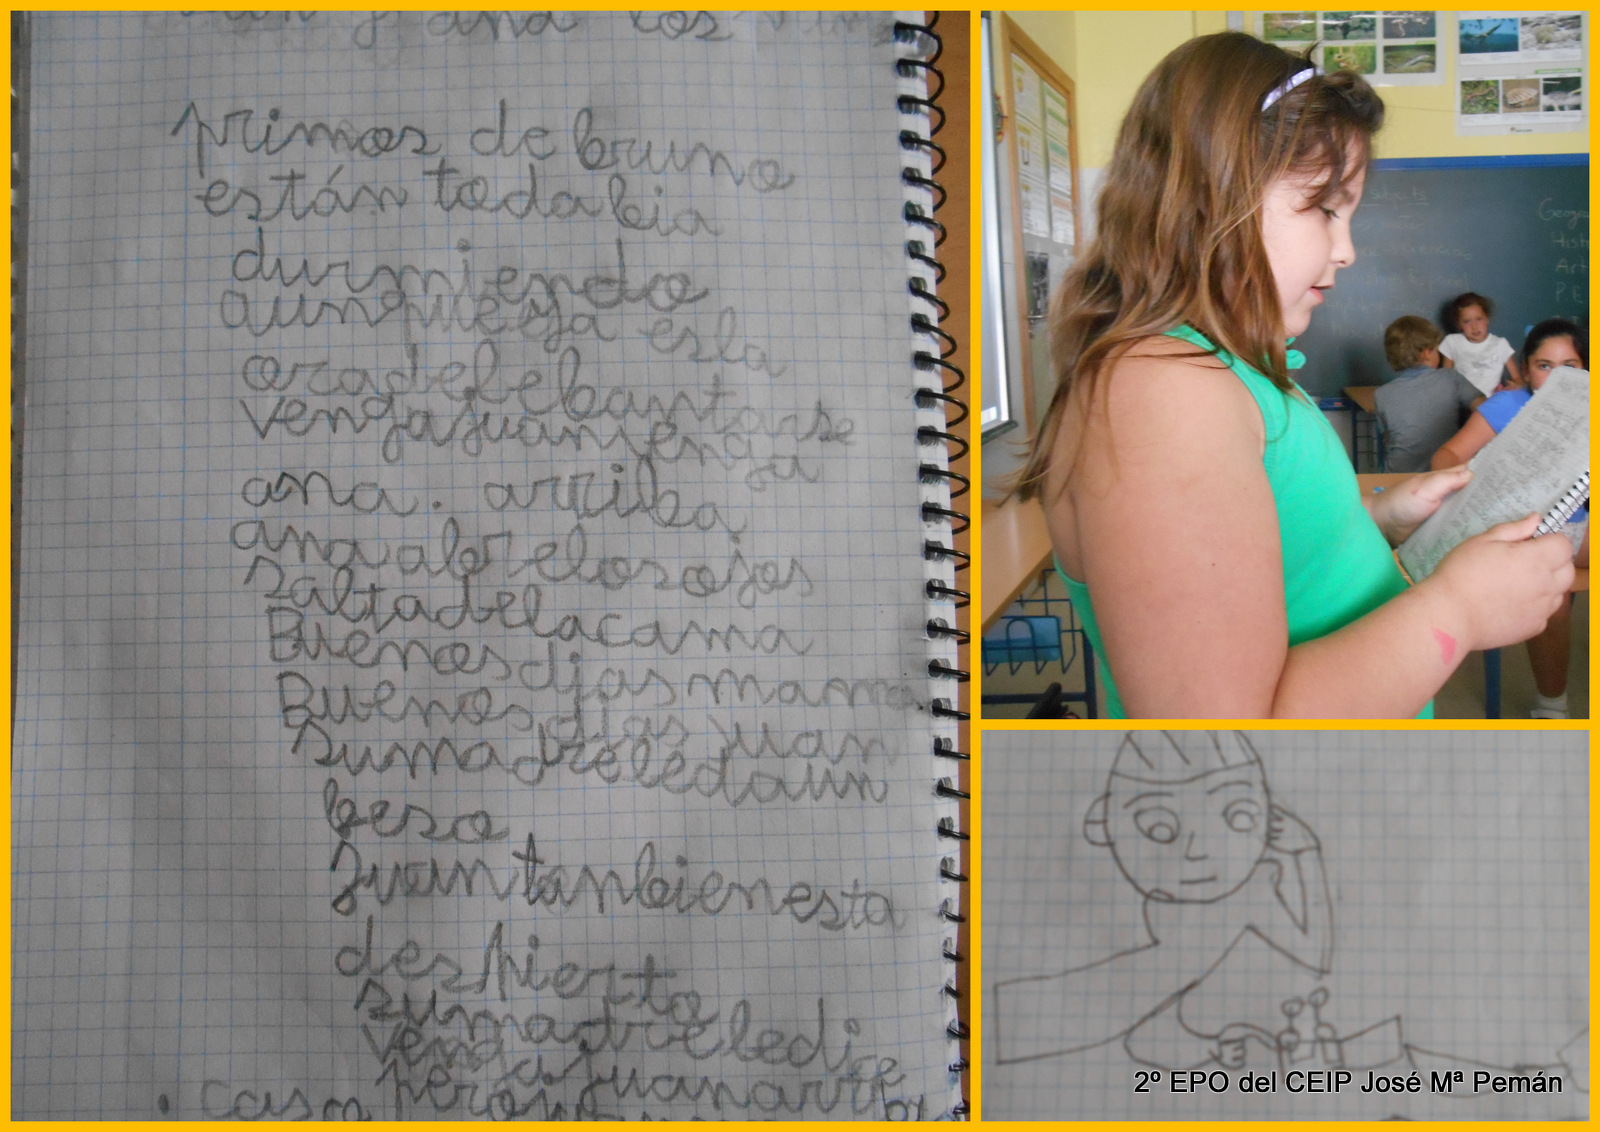 y ana los
primos de bruno
están todabia
durmiendo
aunque ya es la
ora de lebantarse
venga juan venga
ana. arriba
ana abre los ojos
salta de la cama
Buenos dias mama
Buenos dias juan
su madre le da un
beso
Juan tanbien esta
despierto
su madre le dice
venga juan arriba
pero
casa
Geogra
Hist
Art
P E
2º EPO del CEIP José Mª Pemán